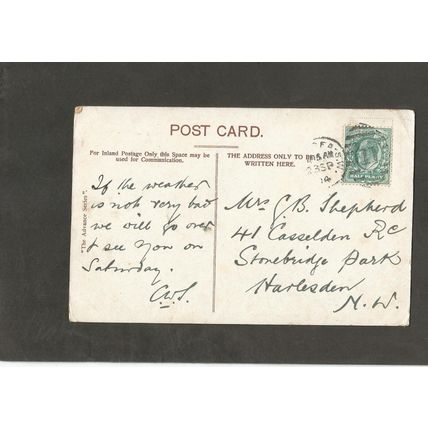 POST CARD.
For Inland Postage Only this Space may be
used for Communication.
THE ADDRESS ONLY TO BE
WRITTEN HERE.
"The Advance Series".
If the weather
is not very bad
we will go over
& see you on
Saturday.
C.W.S.
Mrs G. B. Shepherd
41 Casselden Rd
Stonebridge Park
Harlesden
N. W.
23 SP
04
HALF PENNY